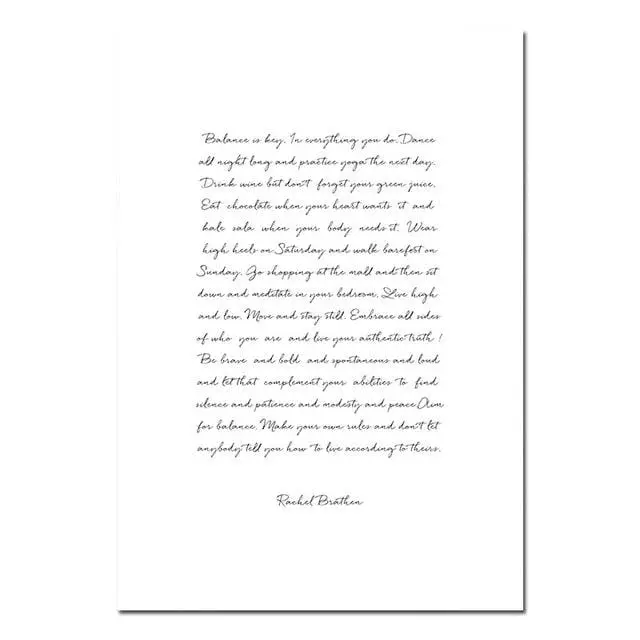 Balance is key. In everything you do. Dance
all night long and practice yoga the next day.
Drink wine but don't forget your green juice.
Eat chocolate when your heart wants it and
kale sala when your body needs it. Wear
high heels on Saturday and walk barefot on
Sunday. Go shopping at the mall and then sit
down and meditate in your bedroom. Live high
and low. Move and stay still. Embrace all sides
of who you are and live your authentic truth!
Be brave and bold and spontaneous and loud
and let that complement your abilities to find
silence and patience and modesty and peace. Aim
for balance. Make your own rules and don't let
anybody tell you how to live according to theirs.
Rachel Brathen